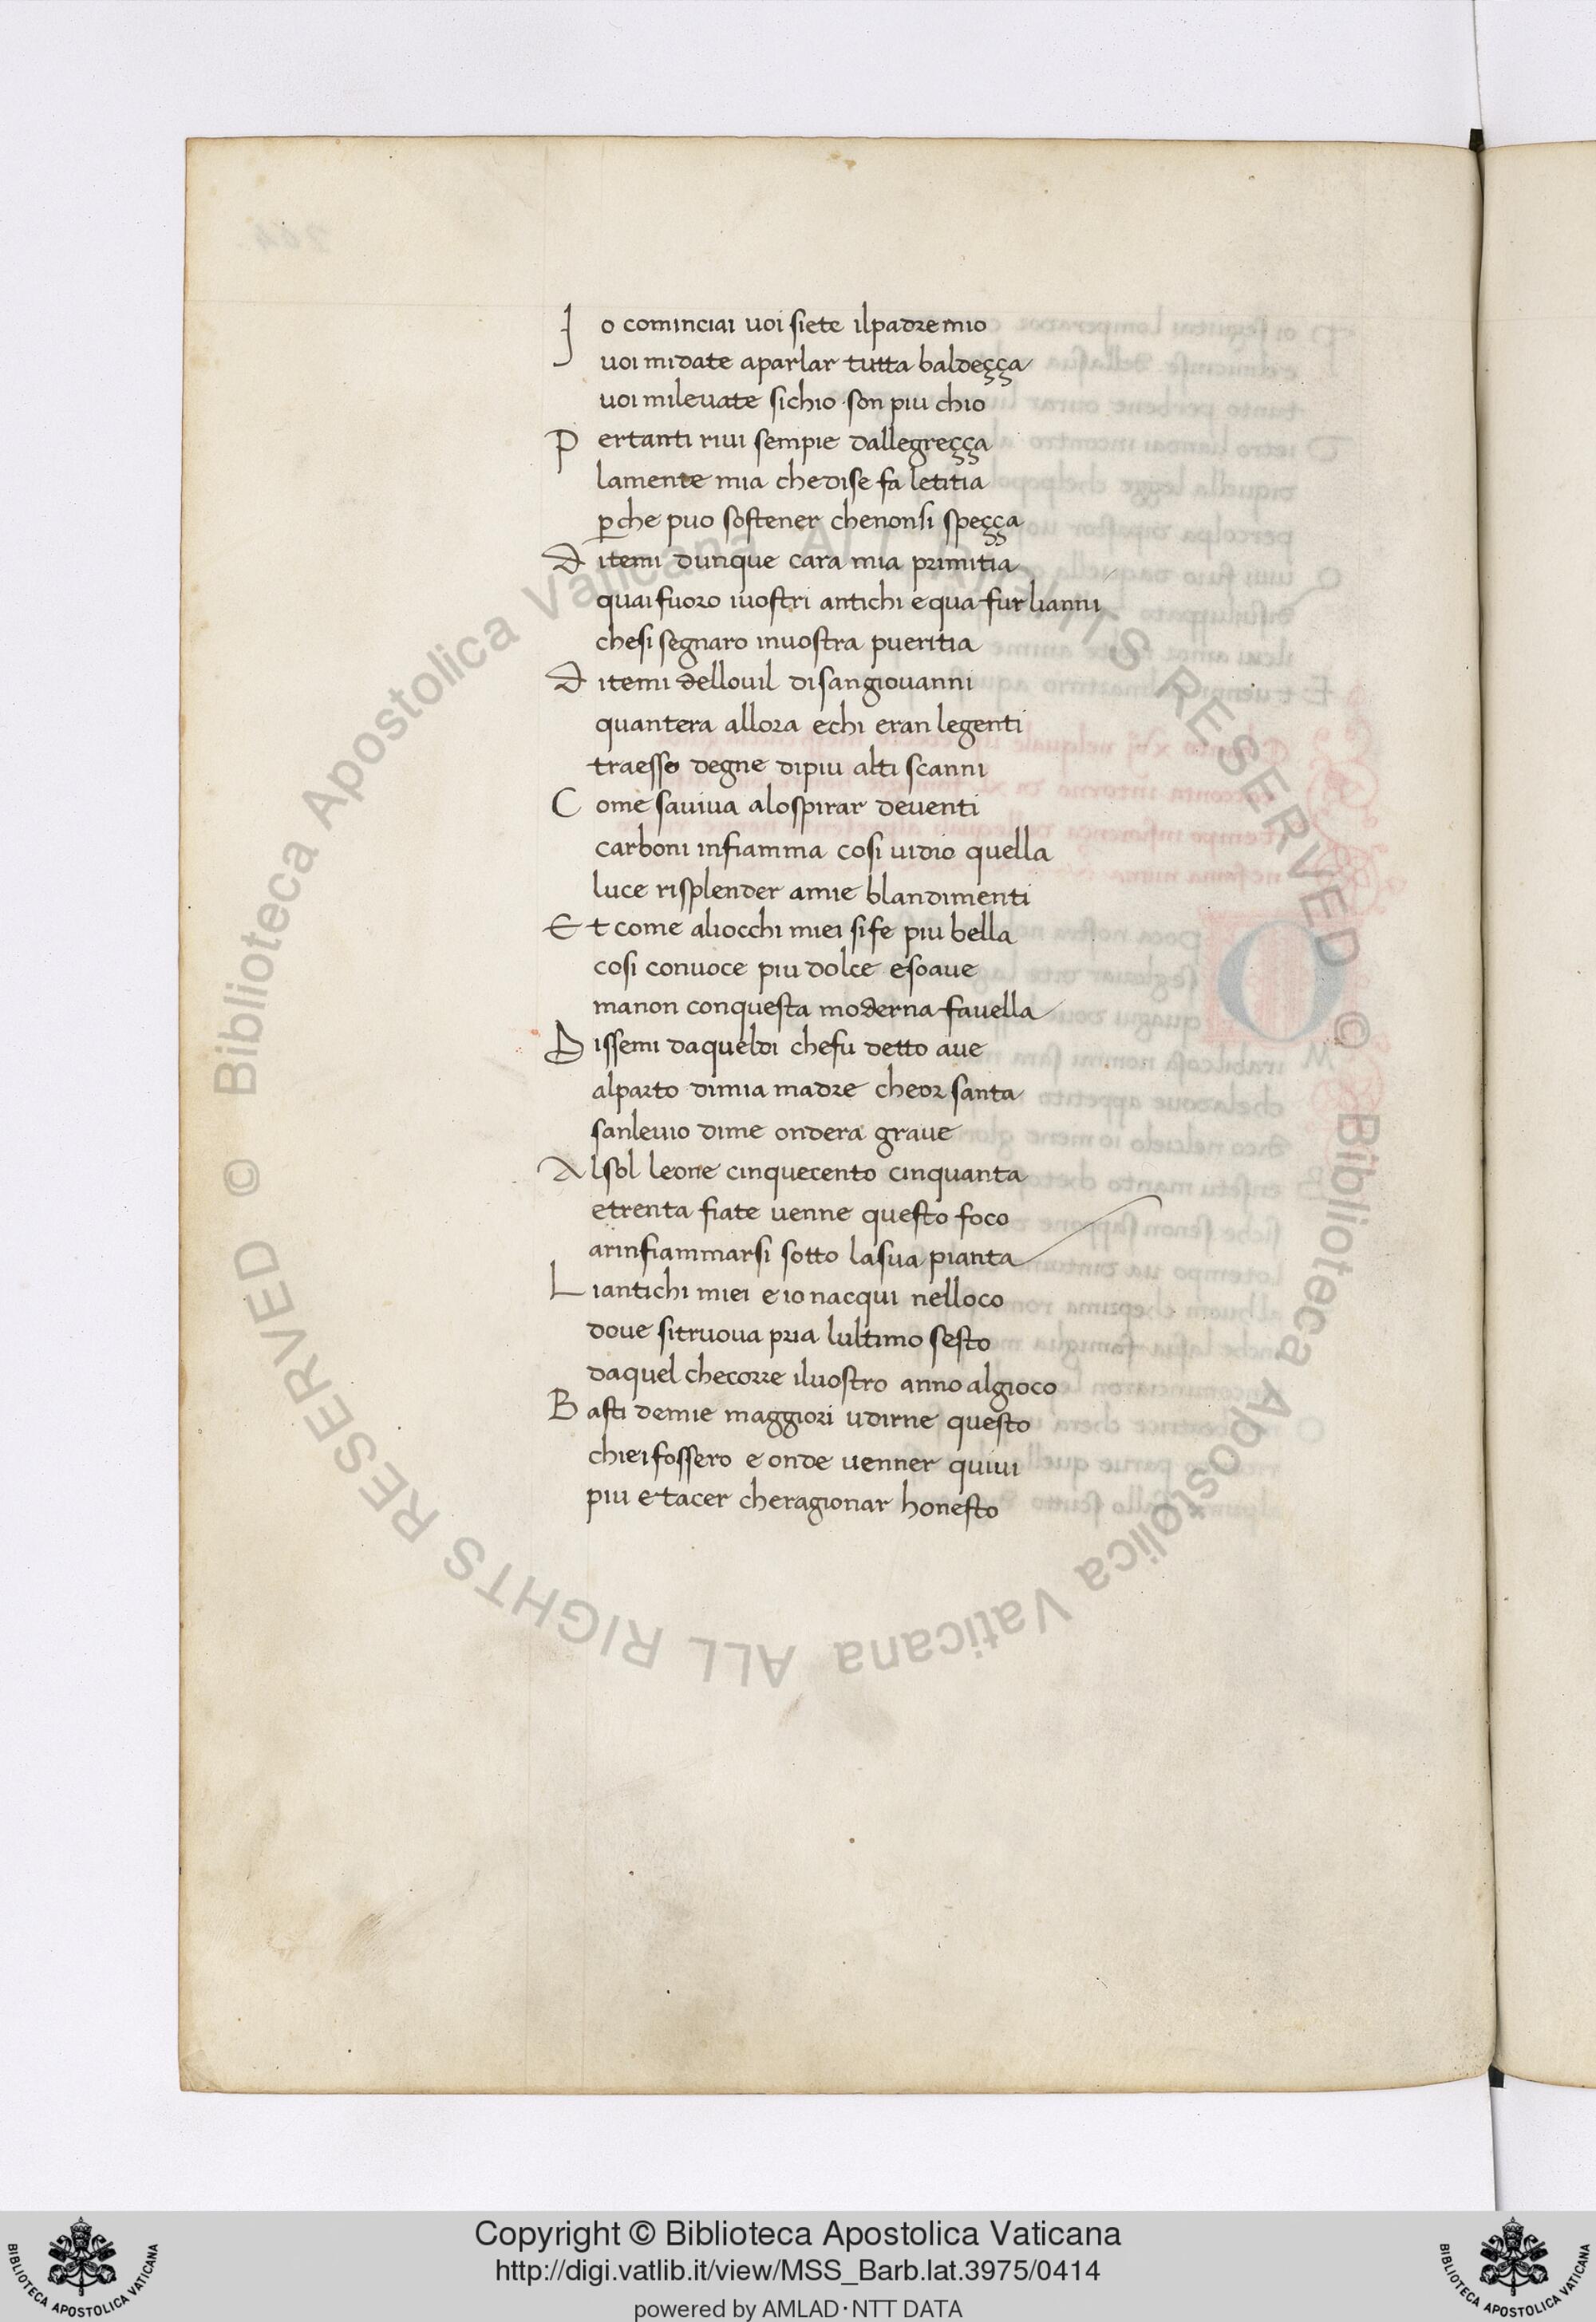 Io cominciai uoi siete ilpadre mio
uoi midate aparlar tutta baldeçça
uoi mileuate sichio son piu chio
Pertanti riui sempie dallegreçça
lamente mia chedise fa letitia
ꝑche puo sostener chenonsi speçça
Ditemi dunque cara mia primitia
quai fuoro iuostri antichi e qua fur lianni
chesi segnaro inuostra pueritia
Ditemi dellouil disangiouanni
quantera allora echi eran legenti
traesso degne dipiu alti scanni
Come saviua alospirar deuenti
carboni infiamma cosi uidio quella
luce risplender amie blandimenti
Et come aliocchi miei sife piu bella
cosi conuoce piu dolce esoaue
manon conquesta moderna fauella
Dissemi daqueldi chefu detto aue
alparto dimia madre cheor santa
sanleuio dime ondera graue
Alsol leone cinquecento cinquanta
etrenta fiate uenne questo foco
arinfiammarsi sotto lasua pianta
Liantichi miei e io nacqui nelloco
doue sitruoua pria lultimo sesto
daquel checorre iluostro anno algioco
Basti demie maggiori udirne questo
chiei fossero e onde uenner quiui
piu e tacer cheragionar honesto
© Biblioteca Apostolica Vaticana ALL RIGHTS RESERVED © Biblioteca Apostolica Vaticana ALL RIGHTS RESERVED
Copyright © Biblioteca Apostolica Vaticana
http://digi.vatlib.it/view/MSS_Barb.lat.3975/0414
powered by AMLAD·NTT DATA
BIBLIOTECA APOSTOLICA VATICANA
BIBLIOTECA APOSTOLICA VATICANA